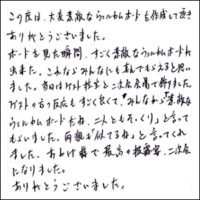 この度は、大変素敵なウェルカムボードを作成して頂き
ありがとうございました。
ボードを見た瞬間、すごく素敵なウェルカムボードが
出来た。これならみんなにも喜んでもらえると思い
ました。当日はゲスト様と二次会会場で飾りました。
ゲストの方の反応もすごく良くて、みんなから「素敵な
ウェルカムボードだね、二人ともそっくり」と言って
もらいました。両親も「似てるね」と言ってくれ
ました。おかげ様で最高の披露宴、二次会
になりました。
ありがとうございました。